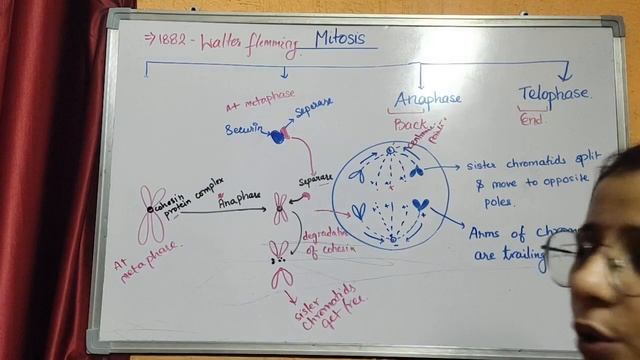 ⇒1882 - Walter flemming Mitosis
At metaphase
Separase
Securin
Anaphase
Back
Telophase
End
sister chromatids split
& move to opposite
poles.
Arms of chrom
are trailing
cohesin
protein complex
Anaphase
At
metaphase.
Separase
degradation
of cohesin
sister
chromatids
get free.